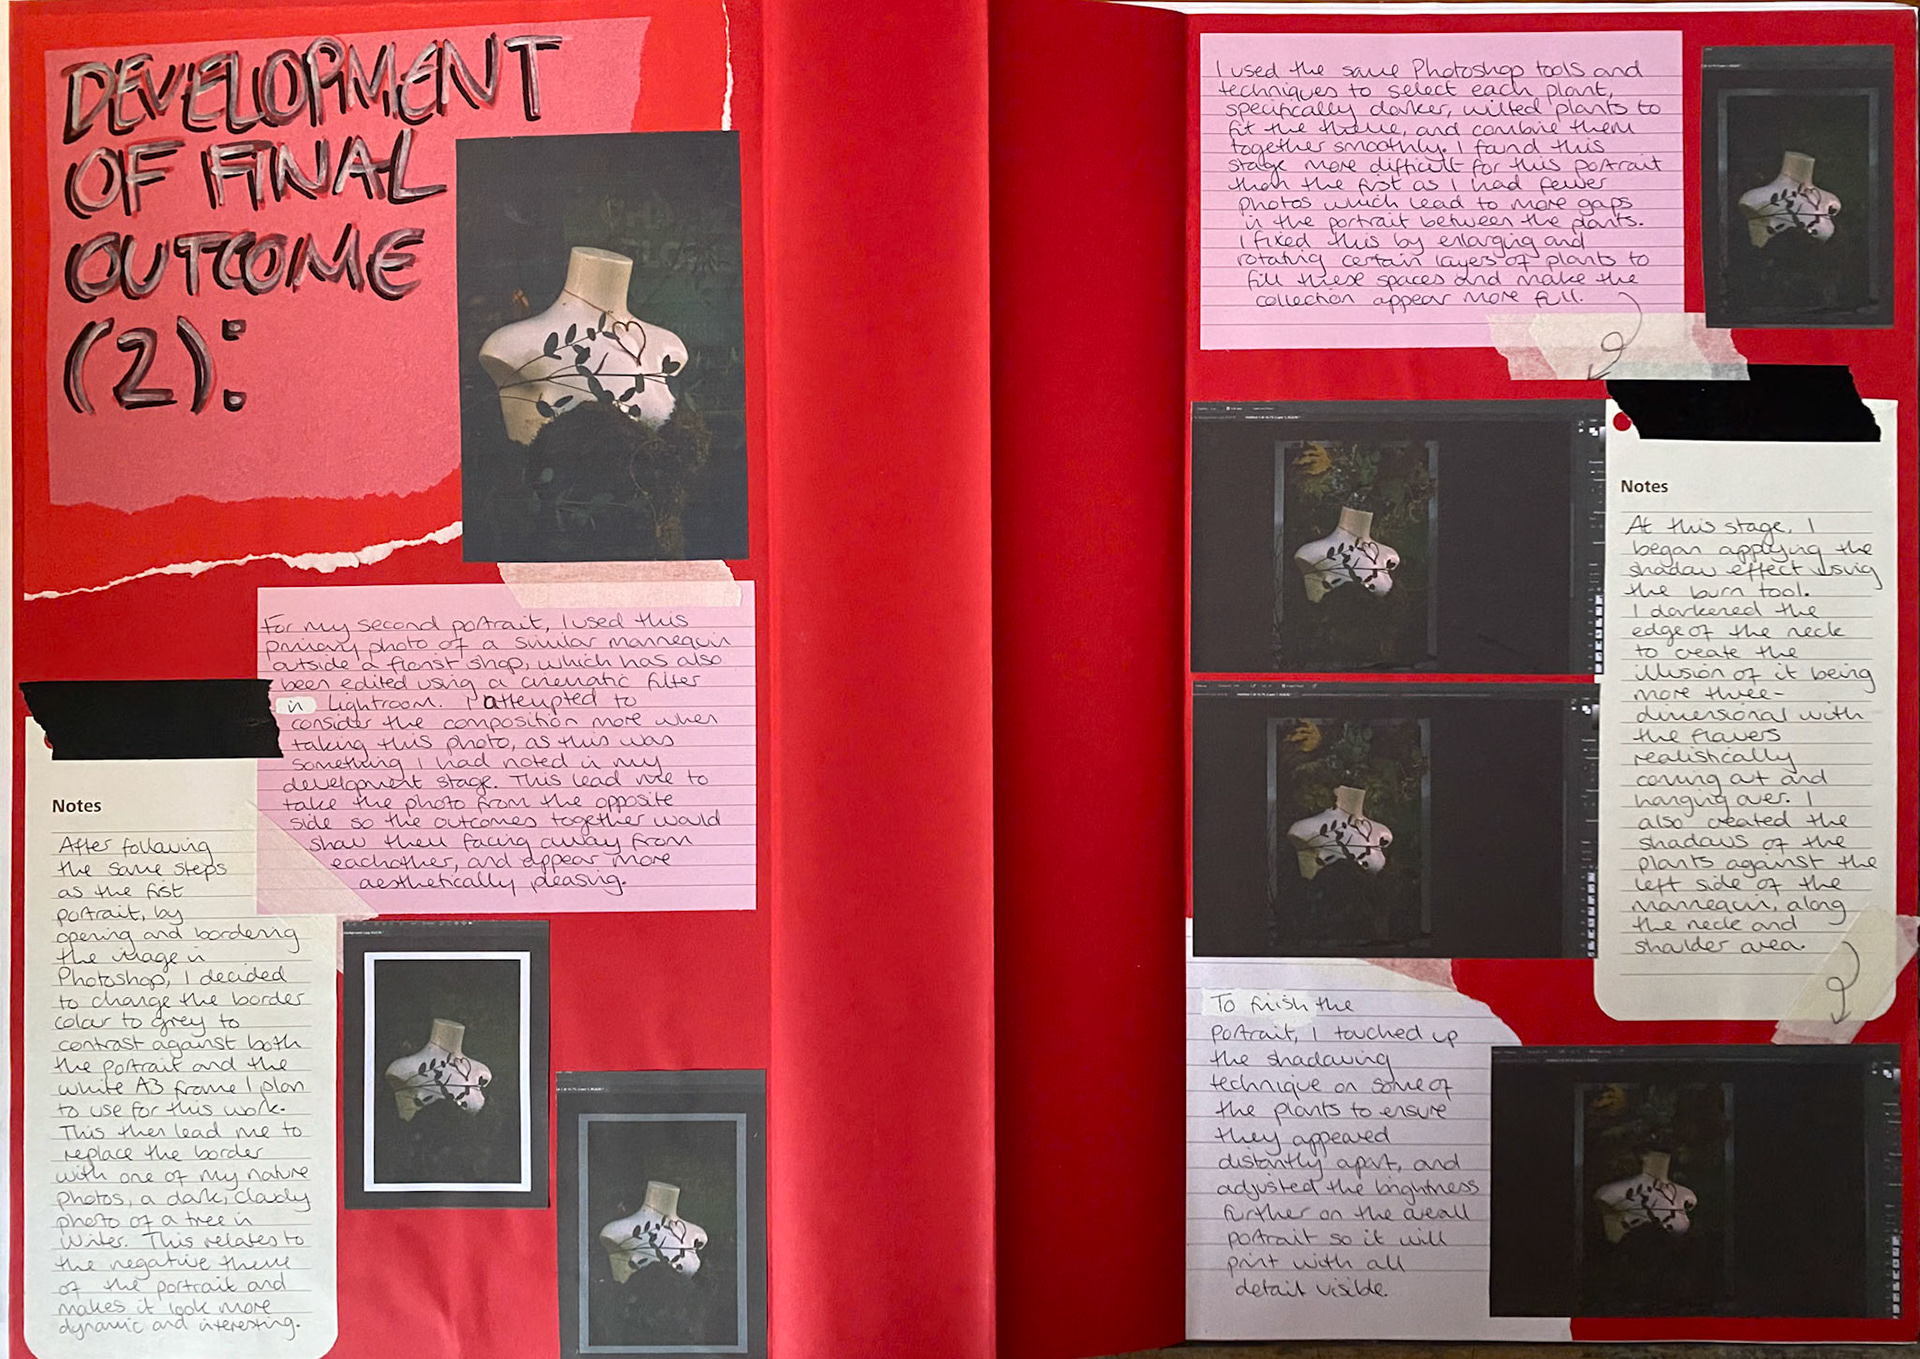 DEVELOPMENT
OF FINAL
OUTCOME
(2):
For my second portrait, I used this
primary photo of a similar mannequin
outside a florist shop, which has also
been edited using a cinematic filter
in Lightroom. I attempted to
consider the composition more when
taking this photo, as this was
something I had noted in my
development stage. This lead me to
take the photo from the opposite
side so the outcomes together would
show them facing away from
eachother, and appear more
aesthetically pleasing.
Notes
After following
the same steps
as the first
portrait, by
opening and bordering
the image in
Photoshop, I decided
to change the border
colour to grey to
contrast against both
the portrait and the
white A3 frame I plan
to use for this work.
This then lead me to
replace the border
with one of my nature
photos, a dark, cloudy
photo of a tree in
Winter. This relates to
the negative theme
of the portrait and
makes it look more
dynamic and interesting.
I used the same Photoshop tools and
techniques to select each plant,
specifically darker, wilted plants to
fit the theme, and combine them
together smoothly. I found this
stage more difficult for this portrait
than the first as I had fewer
photos which lead to more gaps
in the portrait between the plants.
I fixed this by enlarging and
rotating certain layers of plants to
fill these spaces and make the
collection appear more full.
Notes
At this stage, I
began applying the
shadow effect using
the burn tool.
I darkened the
edge of the neck
to create the
illusion of it being
more three-
dimensional with
the flowers
realistically
coming out and
hanging over. I
also created the
shadows of the
plants against the
left side of the
mannequin, along
the neck and
shoulder area.
To finish the
portrait, I touched up
the shadowing
technique on some of
the plants to ensure
they appeared
distantly apart, and
adjusted the brightness
further on the overall
portrait so it will
print with all
detail visible.